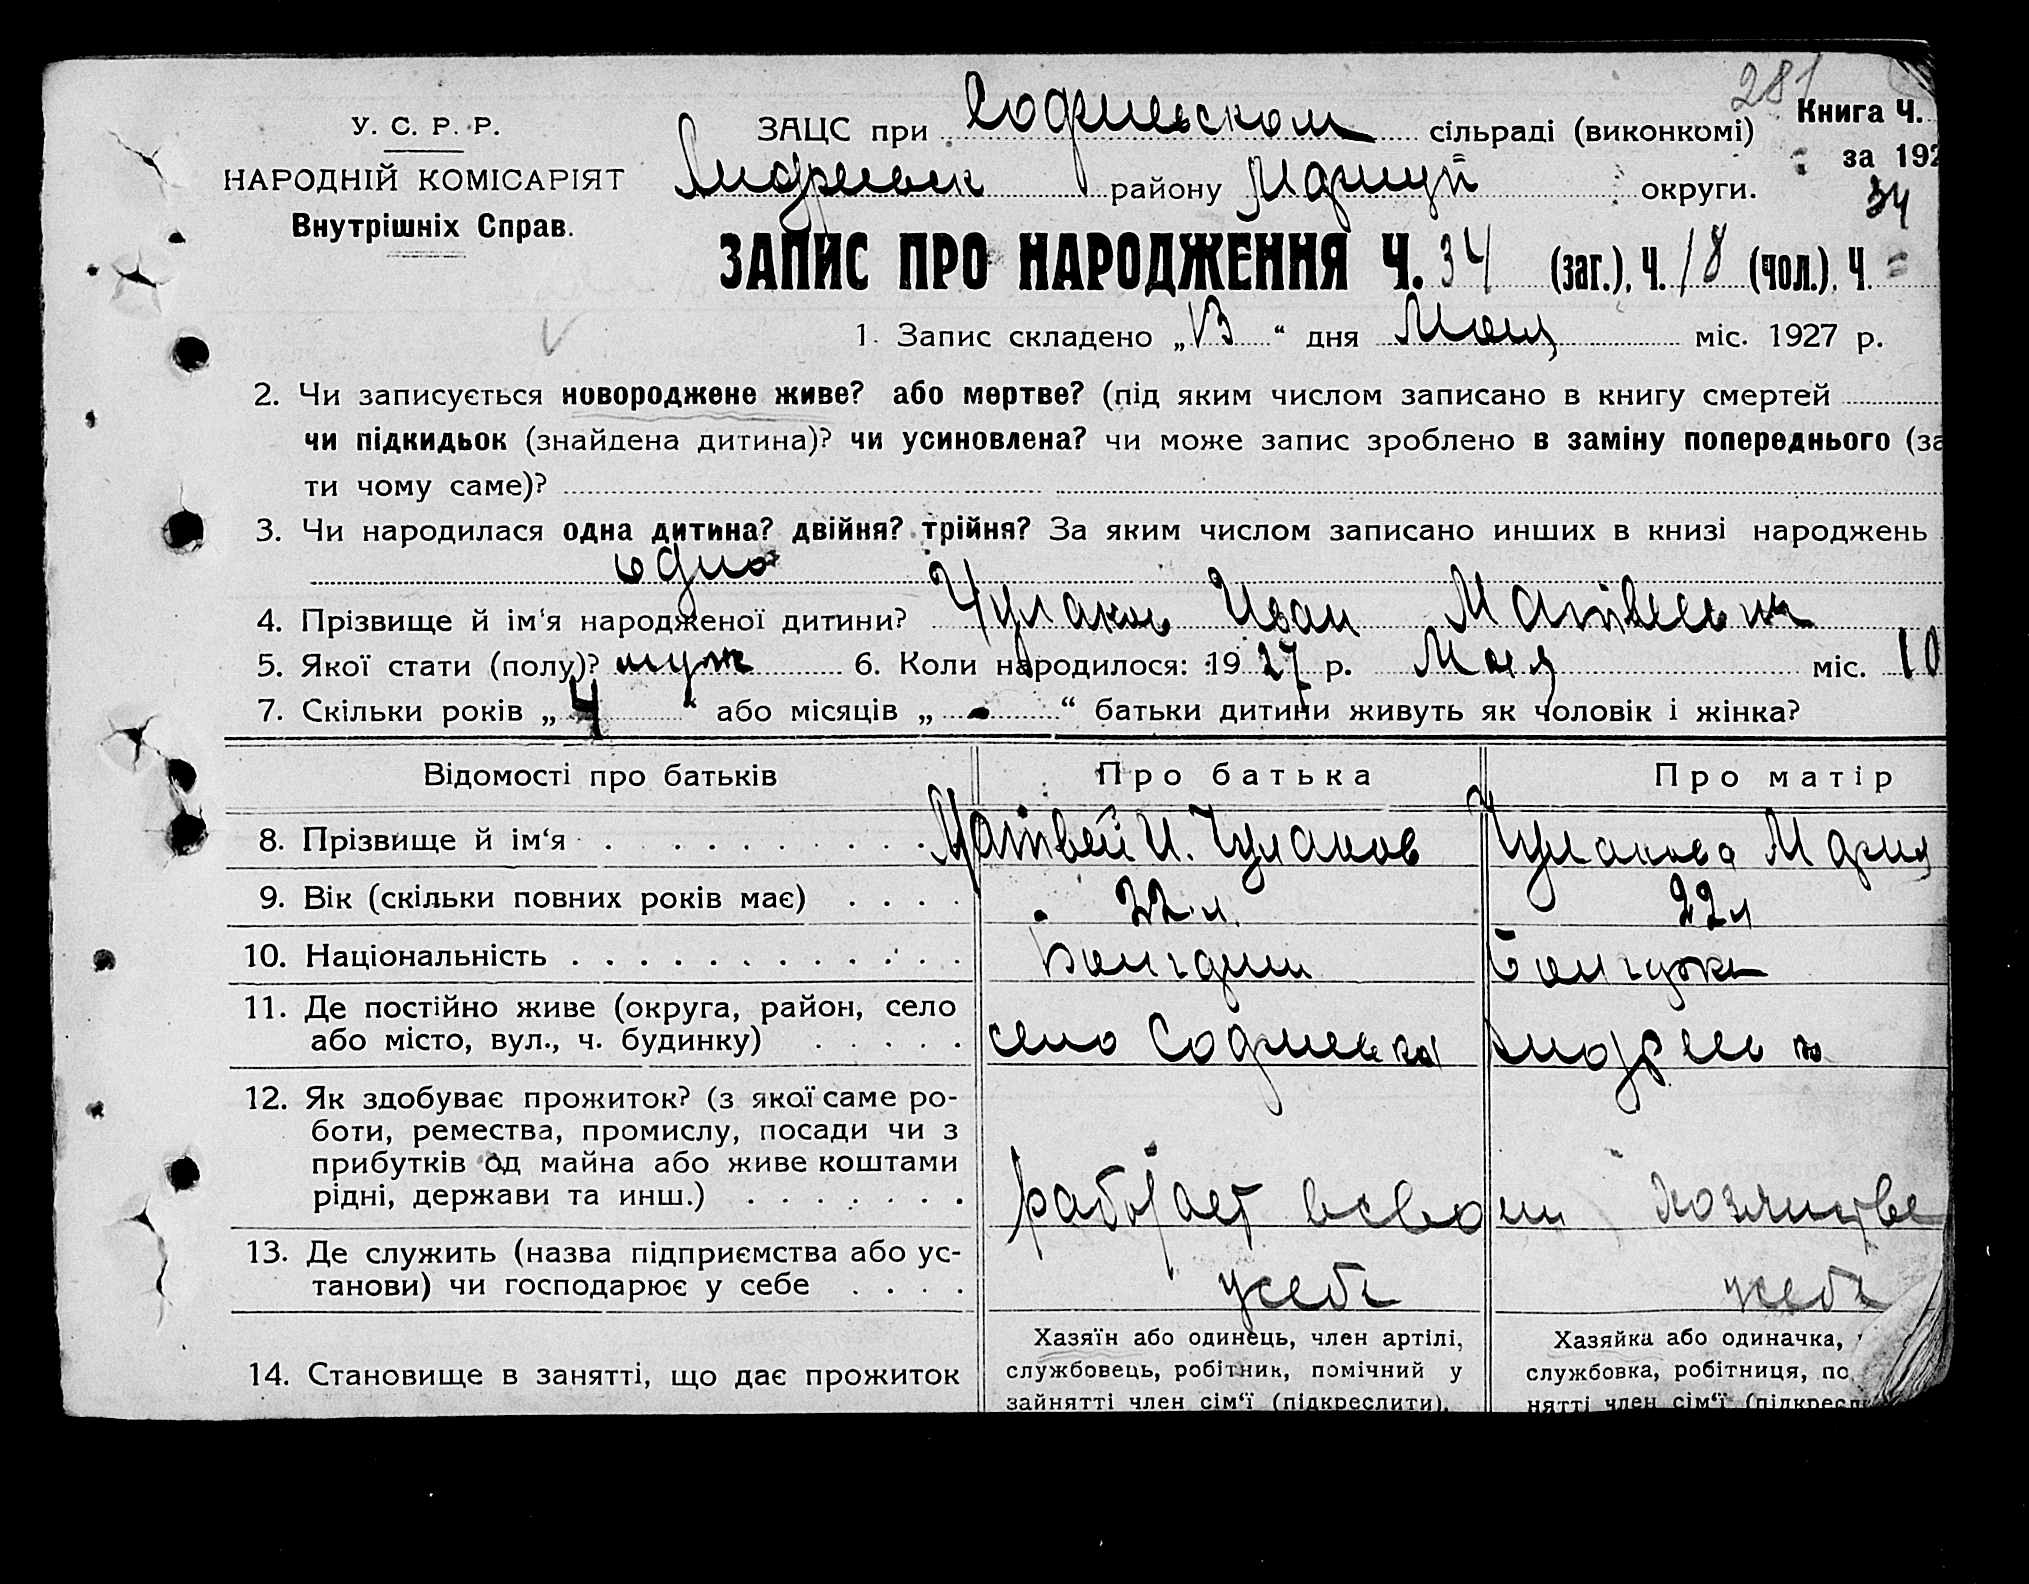 281
У. С. Р. Р.
НАРОДНІЙ КОМІСАРІЯТ
Внутрішніх Справ.
ЗАЦС при Софиевском сільраді (виконкомі)
Книга Ч.
за 192
Андреевск району Мариуп округи.
34
ЗАПИС ПРО НАРОДЖЕННЯ Ч. 34 (заг.), Ч. 18 (чол.), Ч. =
1. Запис складено „13“ дня Мая міс. 1927 р.
2. Чи записується новороджене живе? або мертве? (під яким числом записано в книгу смертей
чи підкидьок (знайдена дитина)? чи усиновлена? чи може запис зроблено в заміну попереднього (за
ти чому саме)?
3. Чи народилася одна дитина? двійня? трійня? За яким числом записано инших в книзі народжень
одно
4. Прізвище й ім‘я народженої дитини? Чулаков Иван Матвеевич
5. Якої стати (полу)? муж 6. Коли народилося: 1927 р. Мая міс. 10
7. Скільки років „4“ або місяців „-“ батьки дитини живуть як чоловік і жінка?
Відомості про батьків Про батька Про матір
8. Прізвище й ім‘я Матвей И. Чулаков Чулакова Мария
9. Вік (скільки повних років має) 22 л 22 л
10. Національність Болгарин Болгарка
11. Де постійно живе (округа, район, село
або місто, вул., ч. будинку) село Софиевка Андреев
12. Як здобуває прожиток? (з якої саме ро-
боти, ремества, промислу, посади чи з
прибутків од майна або живе коштами
рідні, держави та инш.) работает в своем хозяйстве
13. Де служить (назва підприємства або ус-
танови) чи господарює у себе у себя у себя
14. Становище в занятті, що дає прожиток
Хазяїн або одинець, член артілі,
службовець, робітник, помічний у
зайнятті член сім‘ї (підкреслити).
Хазяйка або одиначка,
службовка, робітниця, по
нятті член сім‘ї (підкресл